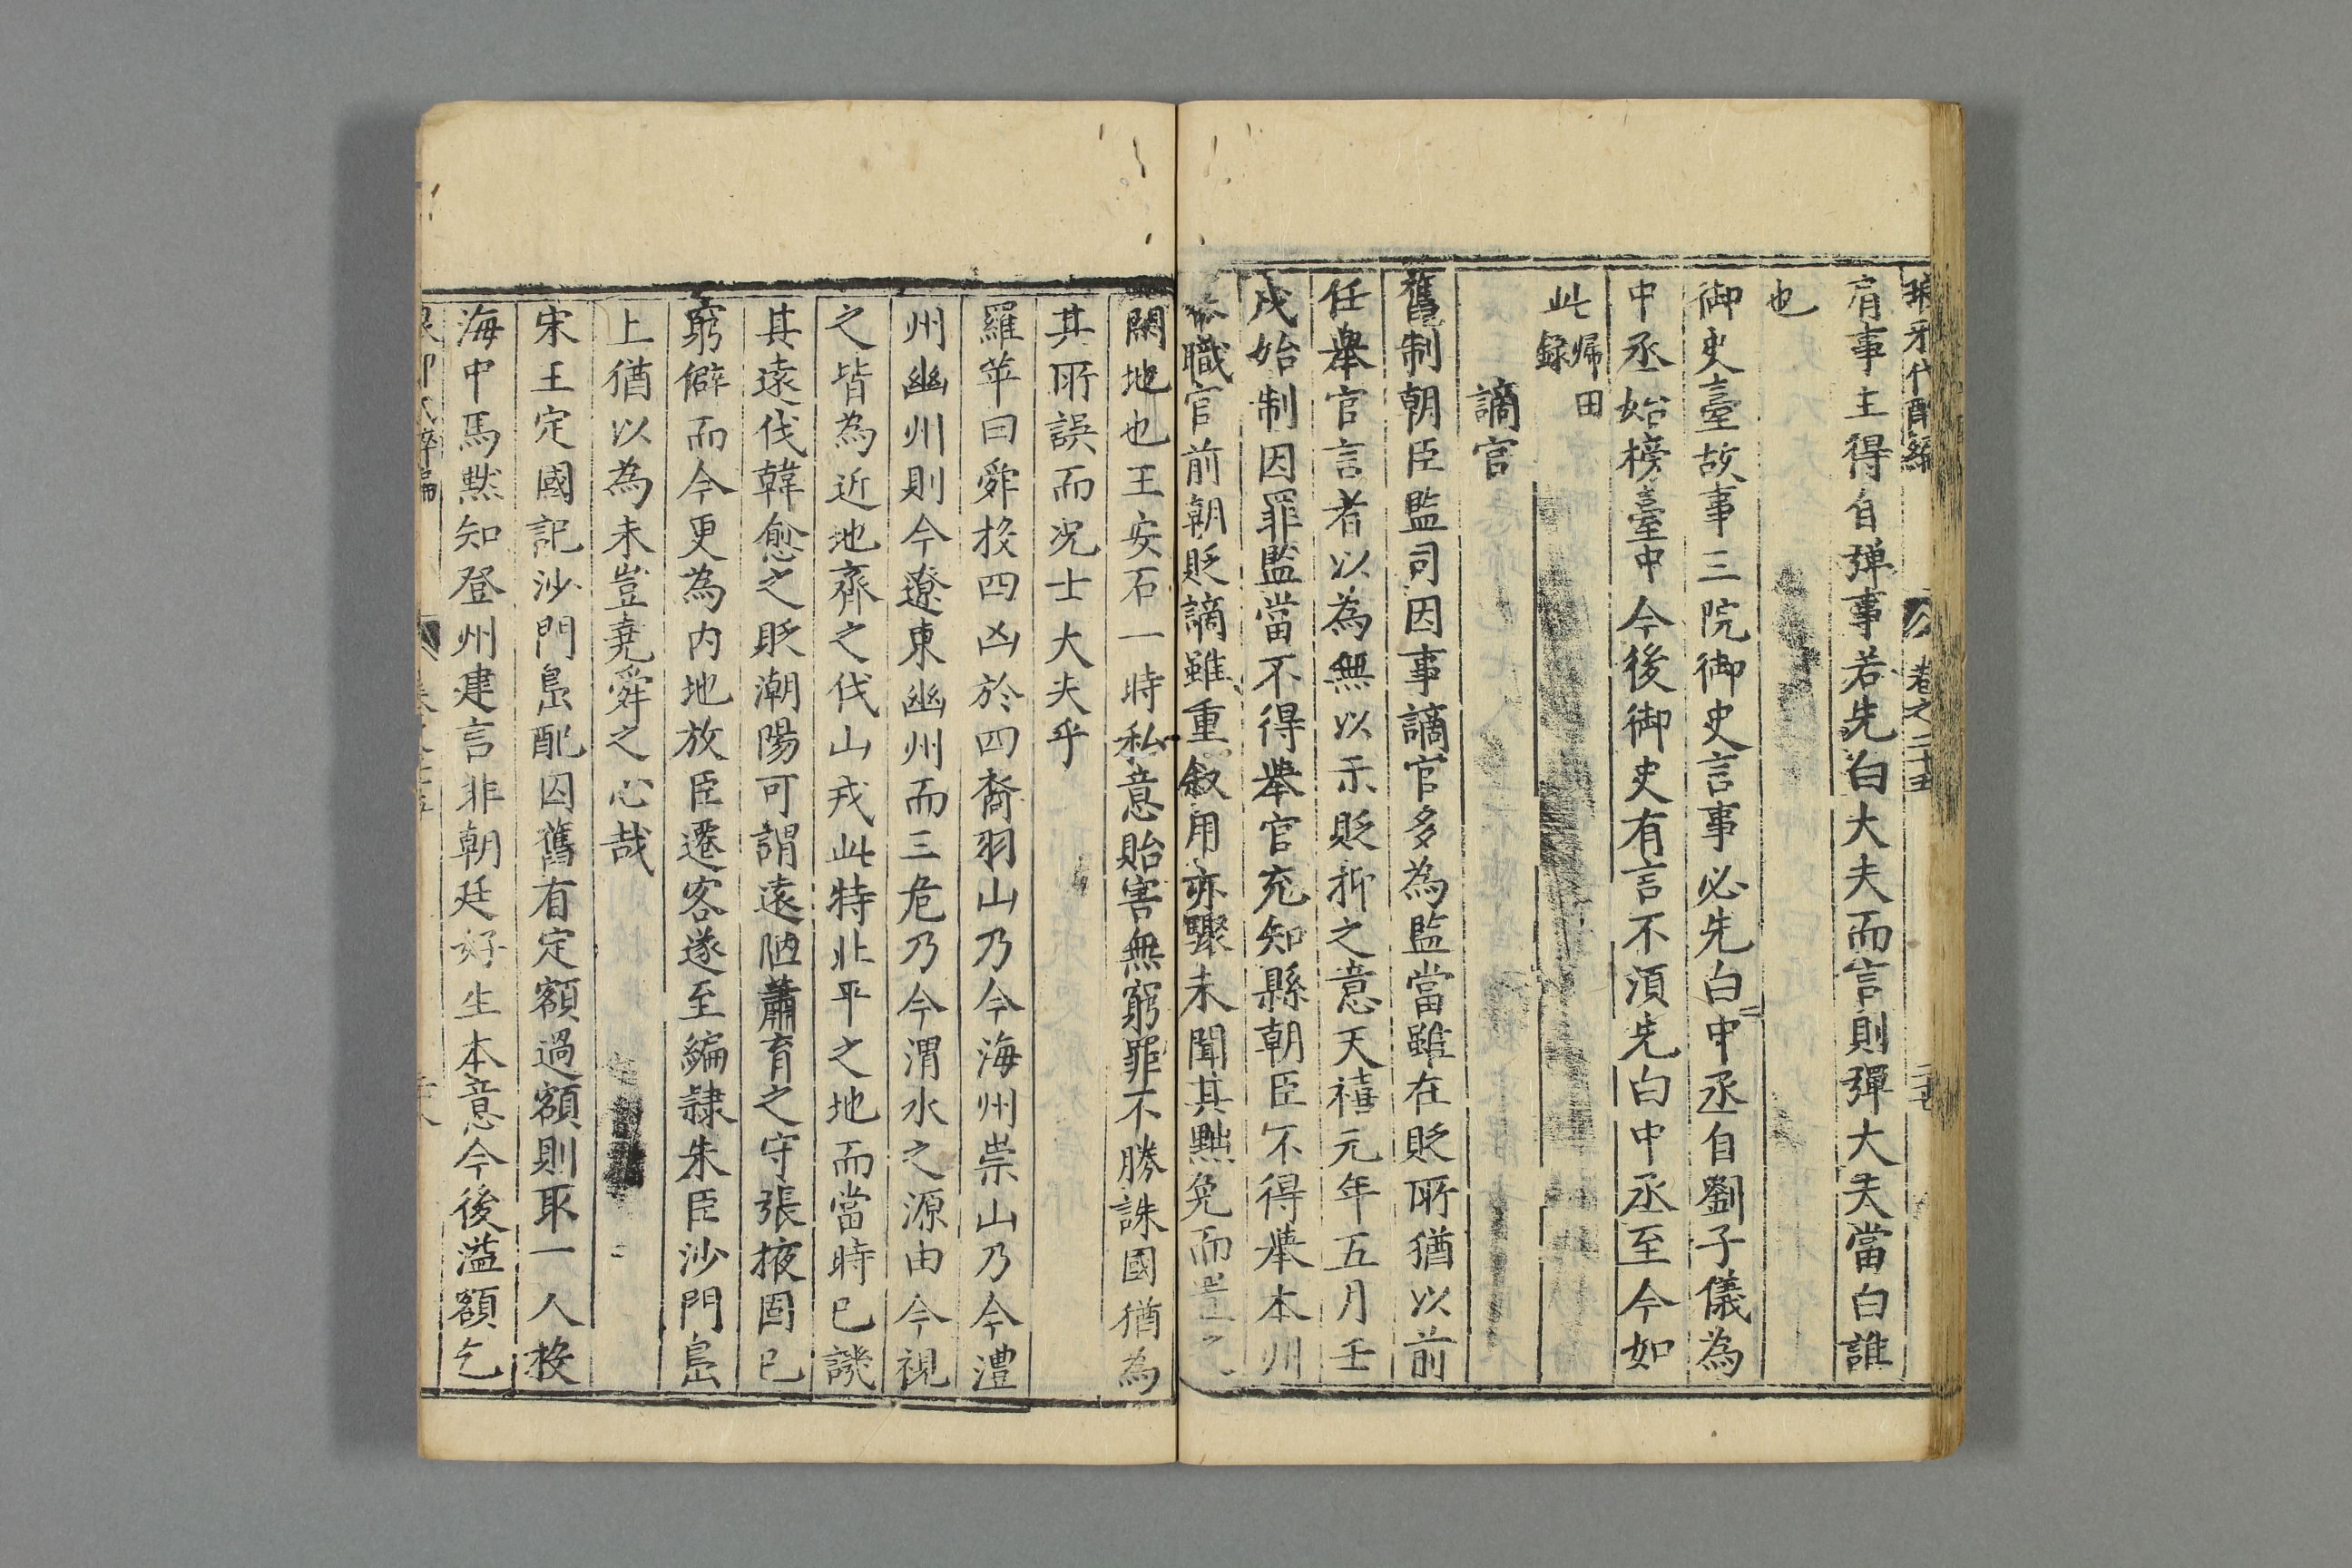 琅牙代醉編 卷之二十五 二十七
肩事主得自彈事若先白大夫而言則彈大夫當白誰
也
御史臺故事三院御史言事必先白中丞自劉子儀為
中丞始榜臺中今後御史有言不須先白中丞至今如
此歸田錄
謫官
舊制朝臣監司因事謫官多為監當雖在貶所猶以前
任舉官言者以為無以示貶抑之意天禧元年五月壬
戌始制因罪監當不得舉官充知縣朝臣不得舉本州
職官前朝貶謫雖重叙用亦驟未聞其黜免而置之
閑地也王安石一時私意貽害無窮罪不勝誅國猶為
其所誤而况士大夫乎
羅苹曰舜投四凶於四裔羽山乃今海州崇山乃今澧
州幽州則今遼東幽州而三危乃今渭水之源由今視
之皆為近地齊之伐山戎此特北平之地而當時已譏
其遠伐韓愈之貶潮陽可謂遠陋蕭育之守張掖固已
窮僻而今更為內地放臣遷客遂至編隸朱臣沙門島
上猶以為未豈堯舜之心哉
宋王定國記沙門島配囚舊有定額過額則取一人投
海中馬默知登州建言非朝廷好生本意今後溢額乞